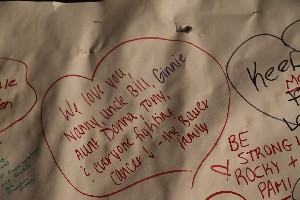 We love you
Nanny, Uncle Bill, Ginnie
Aunt Donna, Tony
& everyone fighting
cancer! - the Bauer
family
Keep
BE
STRONG
ROCKY +
PAM!